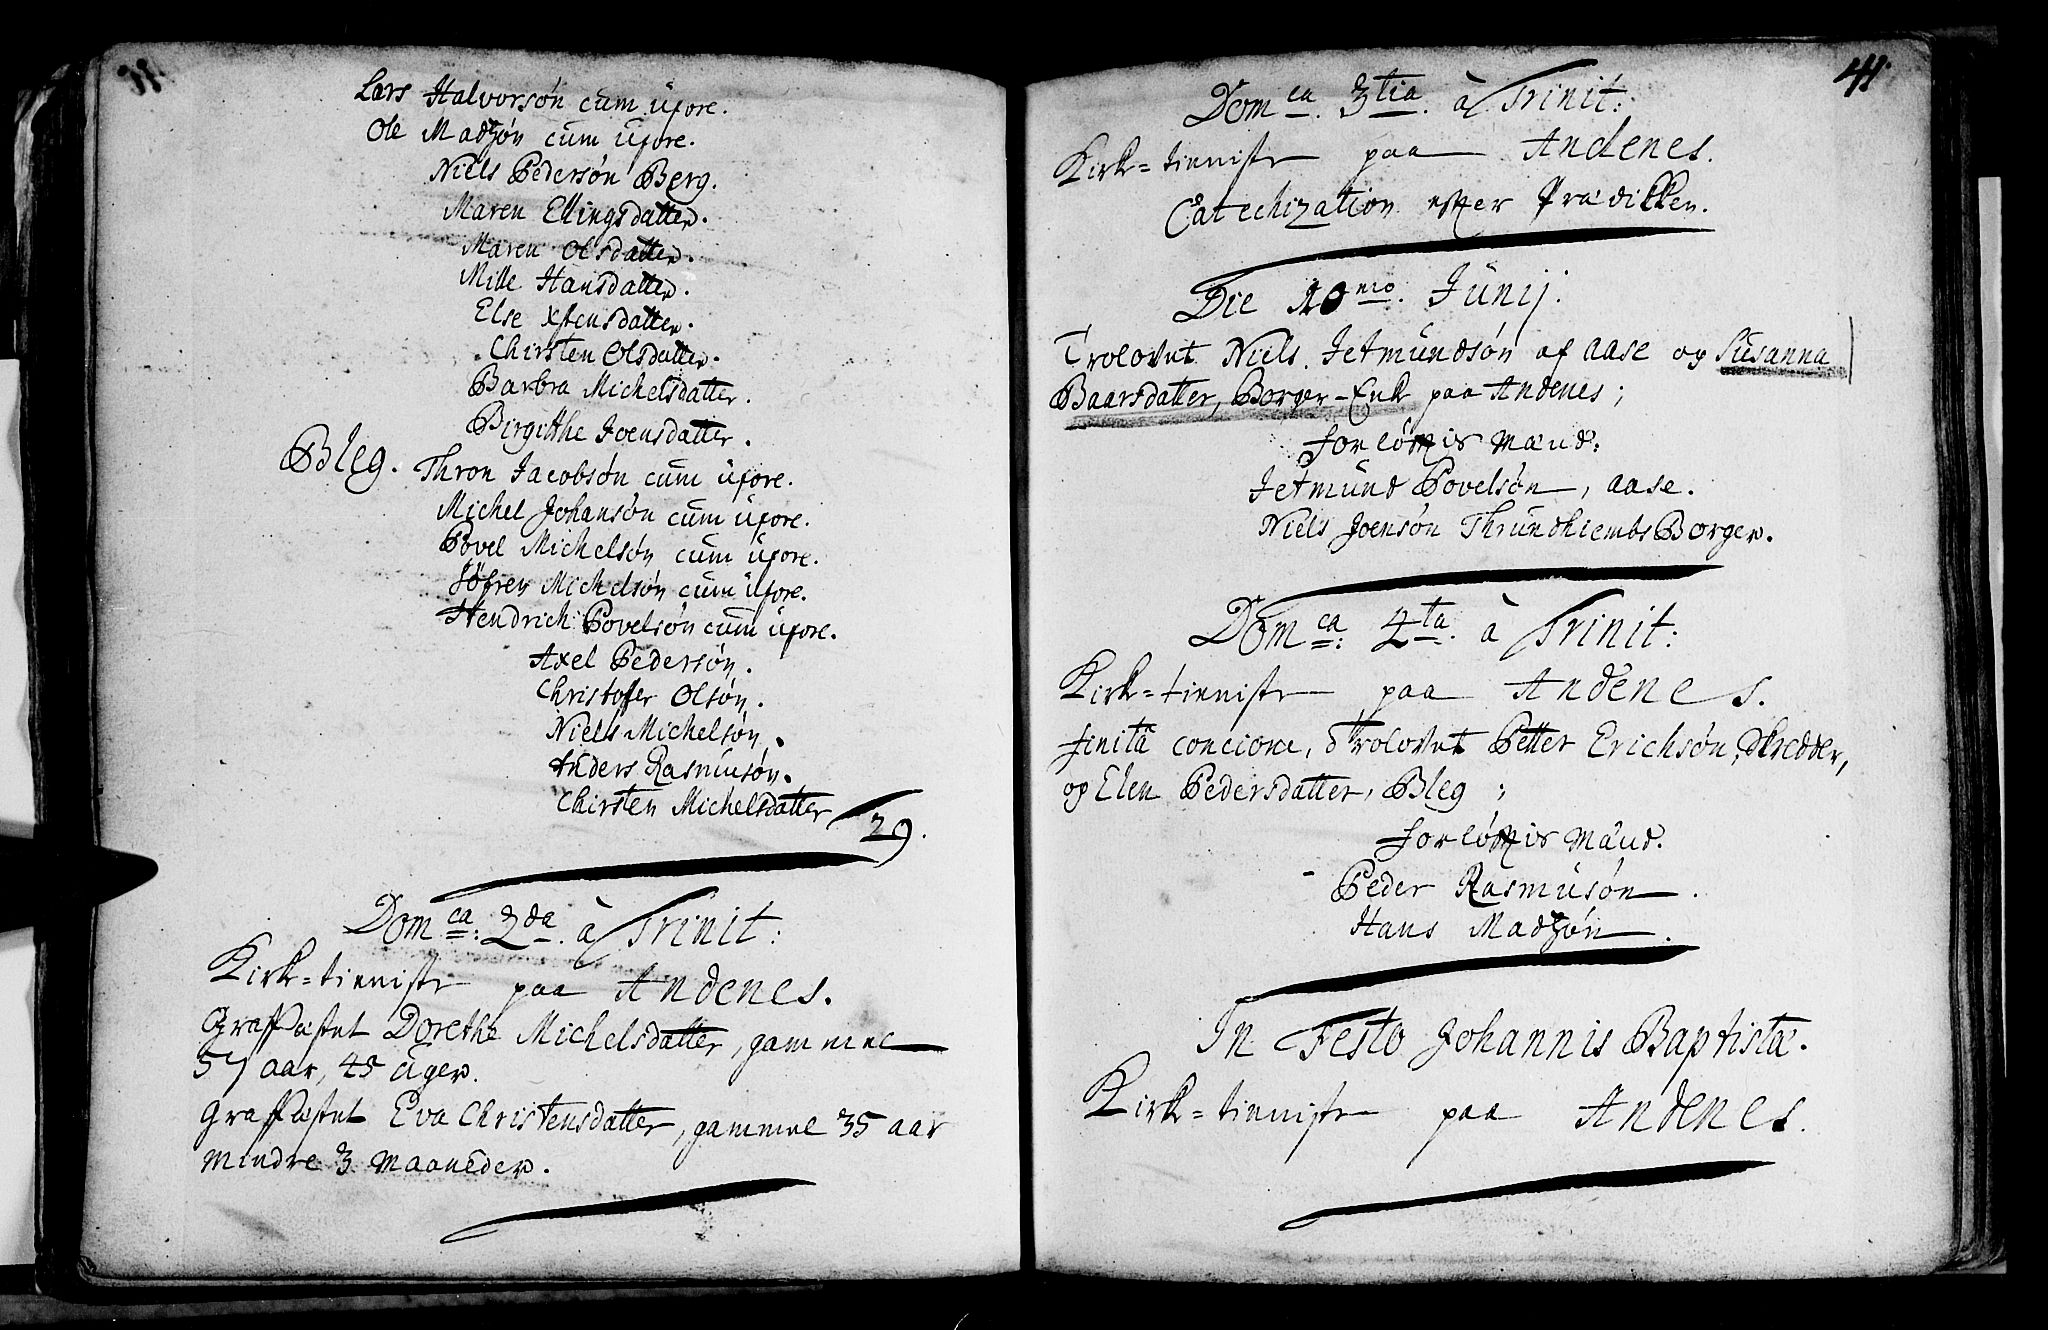 Lars Halvorsøn cum uxore.
Ole Madzøn cum uxore.
Niels Pedersøn Berg.
Maren Ellingsdatter.
Maren Olsdatter.
Mille Hansdatter.
Else Xstensdatter.
Chirsten Olsdatter.
Barbra Michelsdatter.
Birgitthe Joensdatter.
Bleg. Thron Jacobsøn cum uxore.
Michel Johansøn cum uxore.
Povel Michelsøn cum uxore.
Søfren Michelsøn cum uxore.
Hendrich Povelsøn cum uxore.
Axel Pedersøn.
Christoffer Olsøn.
Niels Michelsøn.
Anders Rasmusøn.
Chirsten Michelsdatter 29.
Dom ca: 2da. à Trinit:
Kirk=tienniste paa Andenes.
Graffæstet Dorethe Michelsdatter, gammel
57 aar, 45 uger.
Graffæstet Eva Christensdatter, gammel 35 aar
mindre 3 maaneder.
41.
Dom ca. 3tia. à Trinit:
Kirk=tienniste paa Andenes.
Catechization efter Prædikken.
Die 10mo. Junij.
Trolovet Niels Jetmundsøn af Aase og Susanna
Baarsdatter, Borger-Enke paa Andenes;
forløftis mænd:
Jetmund Povelsøn, Aase.
Niels Joensøn Thrundhiembs Borger.
Dom ca: 4ta. à Trinit:
Kirk=tienniste paa Andenes.
finitâ concione, trolovet Petter Erichsøn, Skredder,
og Elen Pedersdatter, Bleg;
forløftis mænd.
Peder Rasmusøn.
Hans Madzøn.
In Festo Johannis Baptistæ.
Kirk=tienniste paa Andenes.